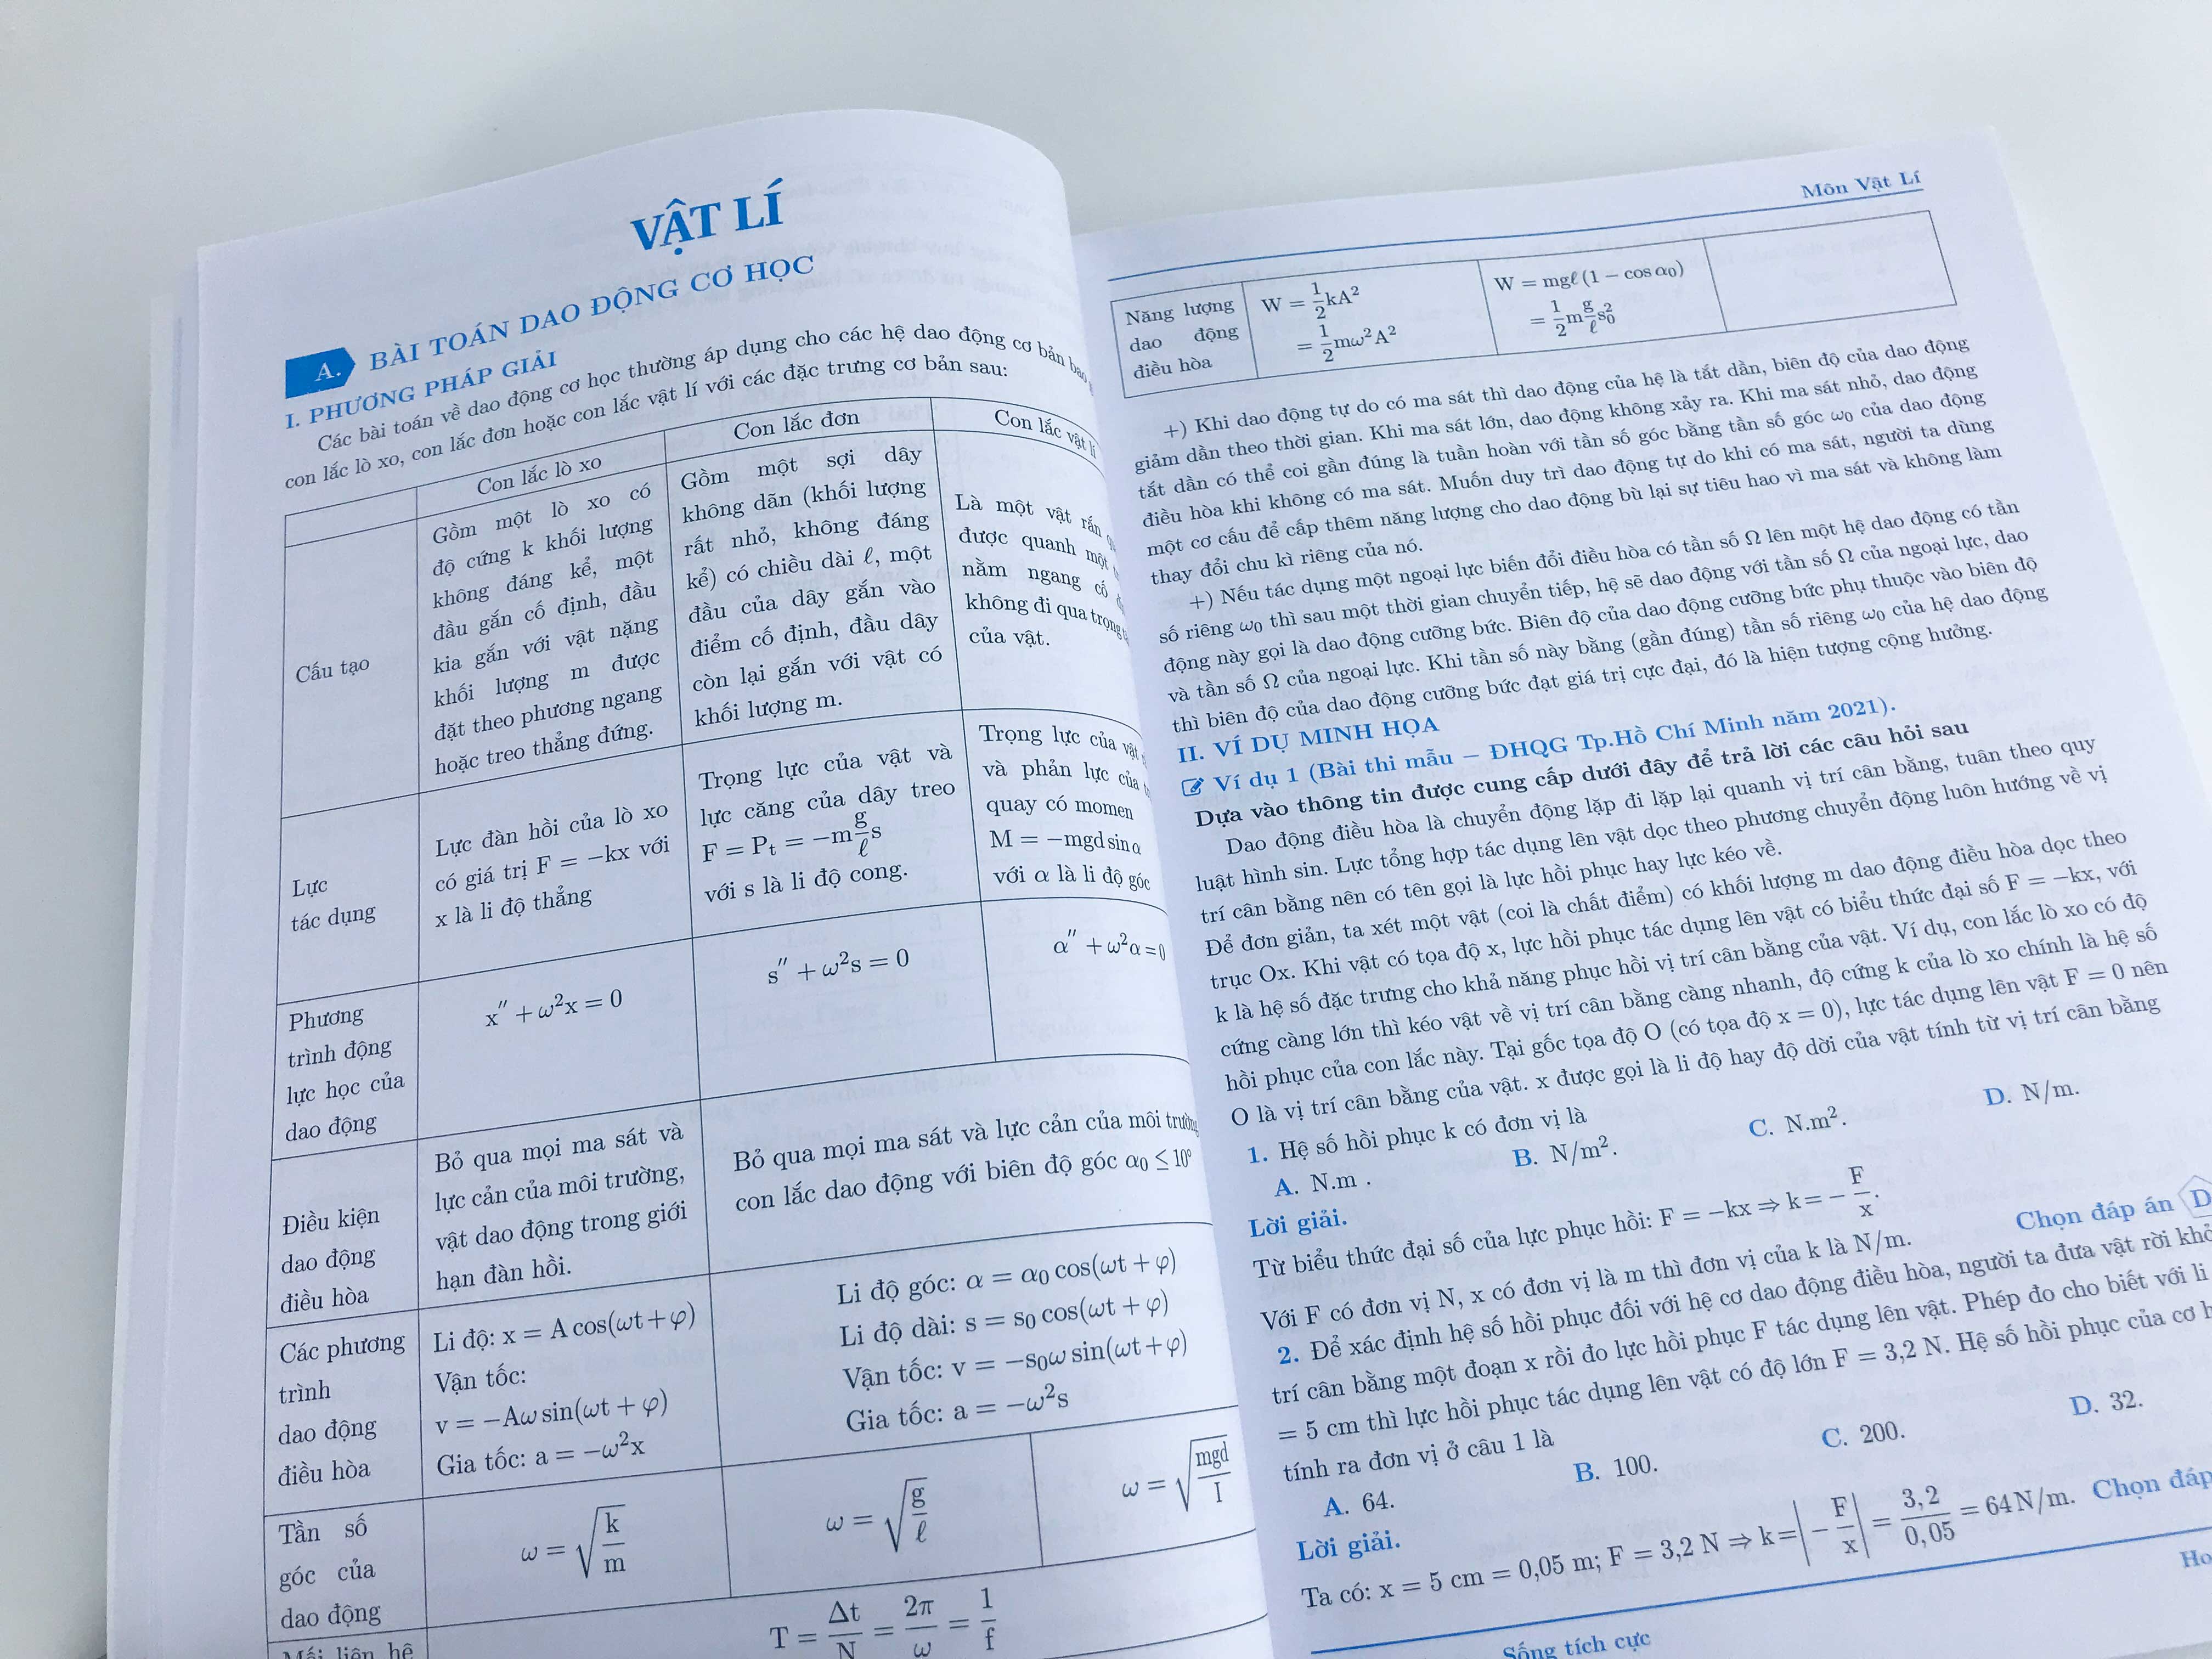 VẬT LÍ
A. BÀI TOÁN DAO ĐỘNG CƠ HỌC
I. PHƯƠNG PHÁP GIẢI
Các bài toán về dao động cơ học thường áp dụng cho các hệ dao động cơ bản bao
con lắc lò xo, con lắc đơn hoặc con lắc vật lí với các đặc trưng cơ bản sau:
Con lắc lò xo
Con lắc đơn
Con lắc vật lí
Cấu tạo
Gồm một lò xo có
độ cứng k khối lượng
không đáng kể, một
đầu gắn cố định, đầu
kia gắn với vật nặng
khối lượng m được
đặt theo phương ngang
hoặc treo thẳng đứng.
Gồm một sợi dây
không dãn (khối lượng
rất nhỏ, không đáng
kể) có chiều dài ℓ, một
đầu của dây gắn vào
điểm cố định, đầu dây
còn lại gắn với vật có
khối lượng m.
Là một vật rắn
được quanh một
nằm ngang cố
không đi qua trọng
của vật.
Lực
tác dụng
Lực đàn hồi của lò xo
có giá trị F = −kx với
x là li độ thẳng
Trọng lực của vật và
lực căng của dây treo
F = Pt = −m g/ℓ s
với s là li độ cong.
Trọng lực của vật
và phản lực của
quay có momen
M = −mgd sin α
với α là li độ góc
Phương
trình động
lực học của
dao động
x″ + ω²x = 0
s″ + ω²s = 0
α″ + ω²α = 0
Điều kiện
dao động
điều hòa
Bỏ qua mọi ma sát và
lực cản của môi trường,
vật dao động trong giới
hạn đàn hồi.
Bỏ qua mọi ma sát và lực cản của môi trường
con lắc dao động với biên độ góc α₀ ≤ 10°
Các phương
trình
dao động
điều hòa
Li độ: x = A cos(ωt + φ)
Vận tốc:
v = −Aω sin(ωt + φ)
Gia tốc: a = −ω²x
Li độ góc: α = α₀ cos(ωt + φ)
Li độ dài: s = s₀ cos(ωt + φ)
Vận tốc: v = −s₀ω sin(ωt + φ)
Gia tốc: a = −ω²s
Tần số
góc của
dao động
ω = √(k/m)
ω = √(g/ℓ)
ω = √(mgd/I)
Mối liên hệ
T = Δt/N = 2π/ω = 1/f
Môn Vật Lí
Năng lượng
dao động
điều hòa
W = 1/2 kA²
= 1/2 mω²A²
W = mgℓ (1 − cos α₀)
= 1/2 m g/ℓ s₀²
+) Khi dao động tự do có ma sát thì dao động của hệ là tắt dần, biên độ của dao động
giảm dần theo thời gian. Khi ma sát lớn, dao động không xảy ra. Khi ma sát nhỏ, dao động
tắt dần có thể coi gần đúng là tuần hoàn với tần số góc bằng tần số góc ω₀ của dao động
điều hòa khi không có ma sát. Muốn duy trì dao động tự do khi có ma sát, người ta dùng
một cơ cấu để cấp thêm năng lượng cho dao động bù lại sự tiêu hao vì ma sát và không làm
thay đổi chu kì riêng của nó.
+) Nếu tác dụng một ngoại lực biến đổi điều hòa có tần số Ω lên một hệ dao động có tần
số riêng ω₀ thì sau một thời gian chuyển tiếp, hệ sẽ dao động với tần số Ω của ngoại lực, dao
động này gọi là dao động cưỡng bức. Biên độ của dao động cưỡng bức phụ thuộc vào biên độ
và tần số Ω của ngoại lực. Khi tần số này bằng (gần đúng) tần số riêng ω₀ của hệ dao động
thì biên độ của dao động cưỡng bức đạt giá trị cực đại, đó là hiện tượng cộng hưởng.
II. VÍ DỤ MINH HỌA
Ví dụ 1 (Bài thi mẫu – ĐHQG Tp.Hồ Chí Minh năm 2021).
Dựa vào thông tin được cung cấp dưới đây để trả lời các câu hỏi sau
Dao động điều hòa là chuyển động lặp đi lặp lại quanh vị trí cân bằng, tuân theo quy
luật hình sin. Lực tổng hợp tác dụng lên vật dọc theo phương chuyển động luôn hướng về vị
trí cân bằng nên có tên gọi là lực hồi phục hay lực kéo về.
Để đơn giản, ta xét một vật (coi là chất điểm) có khối lượng m dao động điều hòa dọc theo
trục Ox. Khi vật có tọa độ x, lực hồi phục tác dụng lên vật có biểu thức đại số F = −kx, với
k là hệ số đặc trưng cho khả năng phục hồi vị trí cân bằng của vật. Ví dụ, con lắc lò xo có độ
cứng càng lớn thì kéo vật về vị trí cân bằng càng nhanh, độ cứng k của lò xo chính là hệ số
hồi phục của con lắc này. Tại gốc tọa độ O (có tọa độ x = 0), lực tác dụng lên vật F = 0 nên
O là vị trí cân bằng của vật. x được gọi là li độ hay độ dời của vật tính từ vị trí cân bằng
1. Hệ số hồi phục k có đơn vị là
A. N.m . B. N/m². C. N.m². D. N/m.
Lời giải.
Từ biểu thức đại số của lực phục hồi: F = −kx ⇒ k = − F/x.
Với F có đơn vị N, x có đơn vị là m thì đơn vị của k là N/m. Chọn đáp án D
2. Để xác định hệ số hồi phục đối với hệ cơ dao động điều hòa, người ta đưa vật rời khỏ
trí cân bằng một đoạn x rồi đo lực hồi phục F tác dụng lên vật. Phép đo cho biết với li
= 5 cm thì lực hồi phục tác dụng lên vật có độ lớn F = 3,2 N. Hệ số hồi phục của cơ h
tính ra đơn vị ở câu 1 là
A. 64. B. 100. C. 200. D. 32.
Lời giải.
Ta có: x = 5 cm = 0,05 m; F = 3,2 N ⇒ k = |− F/x| = 3,2/0,05 = 64 N/m. Chọn đáp
Sống tích cực